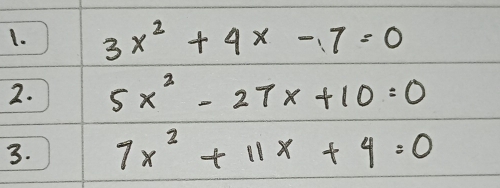 1. 3x² + 4x - 7 = 0
2. 5x² - 27x + 10 = 0
3. 7x² + 11x + 4 = 0